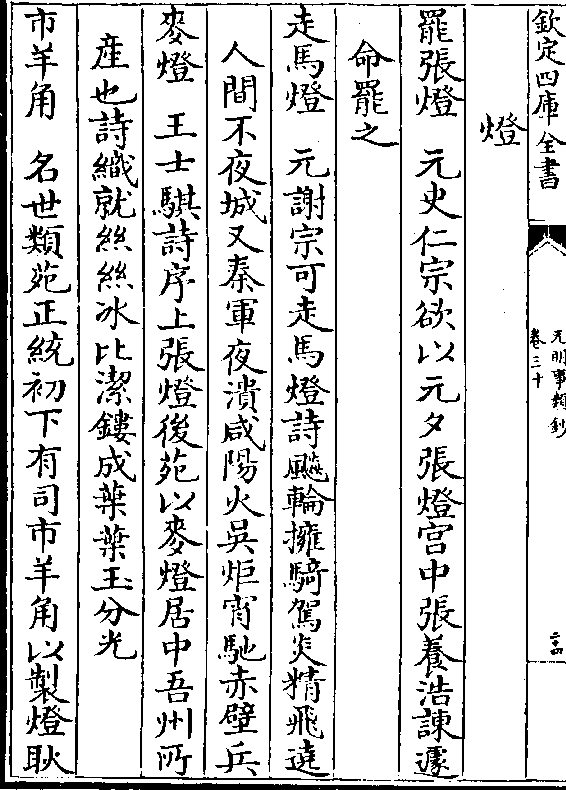 欽定四庫全書
元明事類鈔
卷三十
二十四
燈
罷張燈　元史仁宗欲以元夕張燈宮中張養浩諫遽
命罷之
走馬燈　元謝宗可走馬燈詩飇輪擁騎駕炎精飛遶
人間不夜城又秦軍夜潰咸陽火吳炬宵馳赤壁兵
麥燈　王士騏詩序上張燈後苑以麥燈居中吾州所
産也詩織就絲絲冰比潔鏤成葉葉玉分光
市羊角　名世類苑正統初下有司市羊角以製燈耿